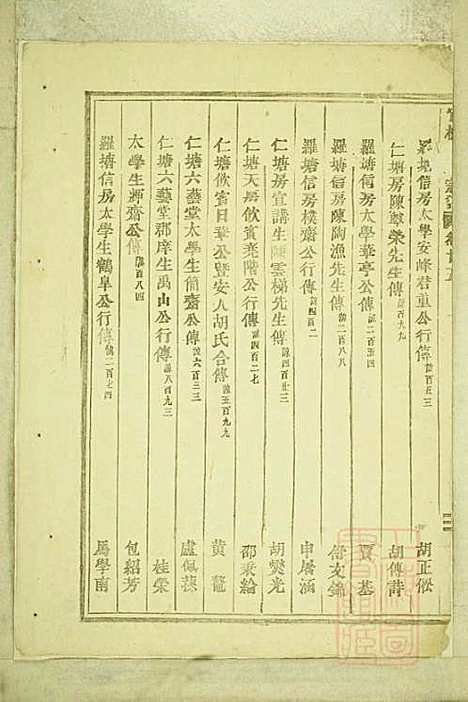 羅塘信房太學安峰君重公行傳 誥百五三 胡正倯
仁塘房陳翠榮先生傳 誥百九九 胡傳詩
羅塘信房太學華亭公傳 誥二百五四 賈基
羅塘信房陳陶漁先生傳 誥二百八八 詹文錦
羅塘信房樸齋公行傳 誥四百二 申屠涵
仁塘房宣講生陳雲梯先生傳 誥四百廿三 胡燮光
仁塘天房飲賓堯階公行傳 誥四百二七 邵秉綸
仁塘飲賓日華公暨安人胡氏合傳 誥五百九九 黃龍
仁塘六藝堂太學生簡齋公傳 誥六百三三 盧佩蓀
仁塘六藝堂郡庠生禹山公行傳 誥八百九三 桂榮
太學生輝齋公傳 誥百八四 包紹芳
羅塘信房太學生鶴皐公行傳 誥二百七四 馬學南